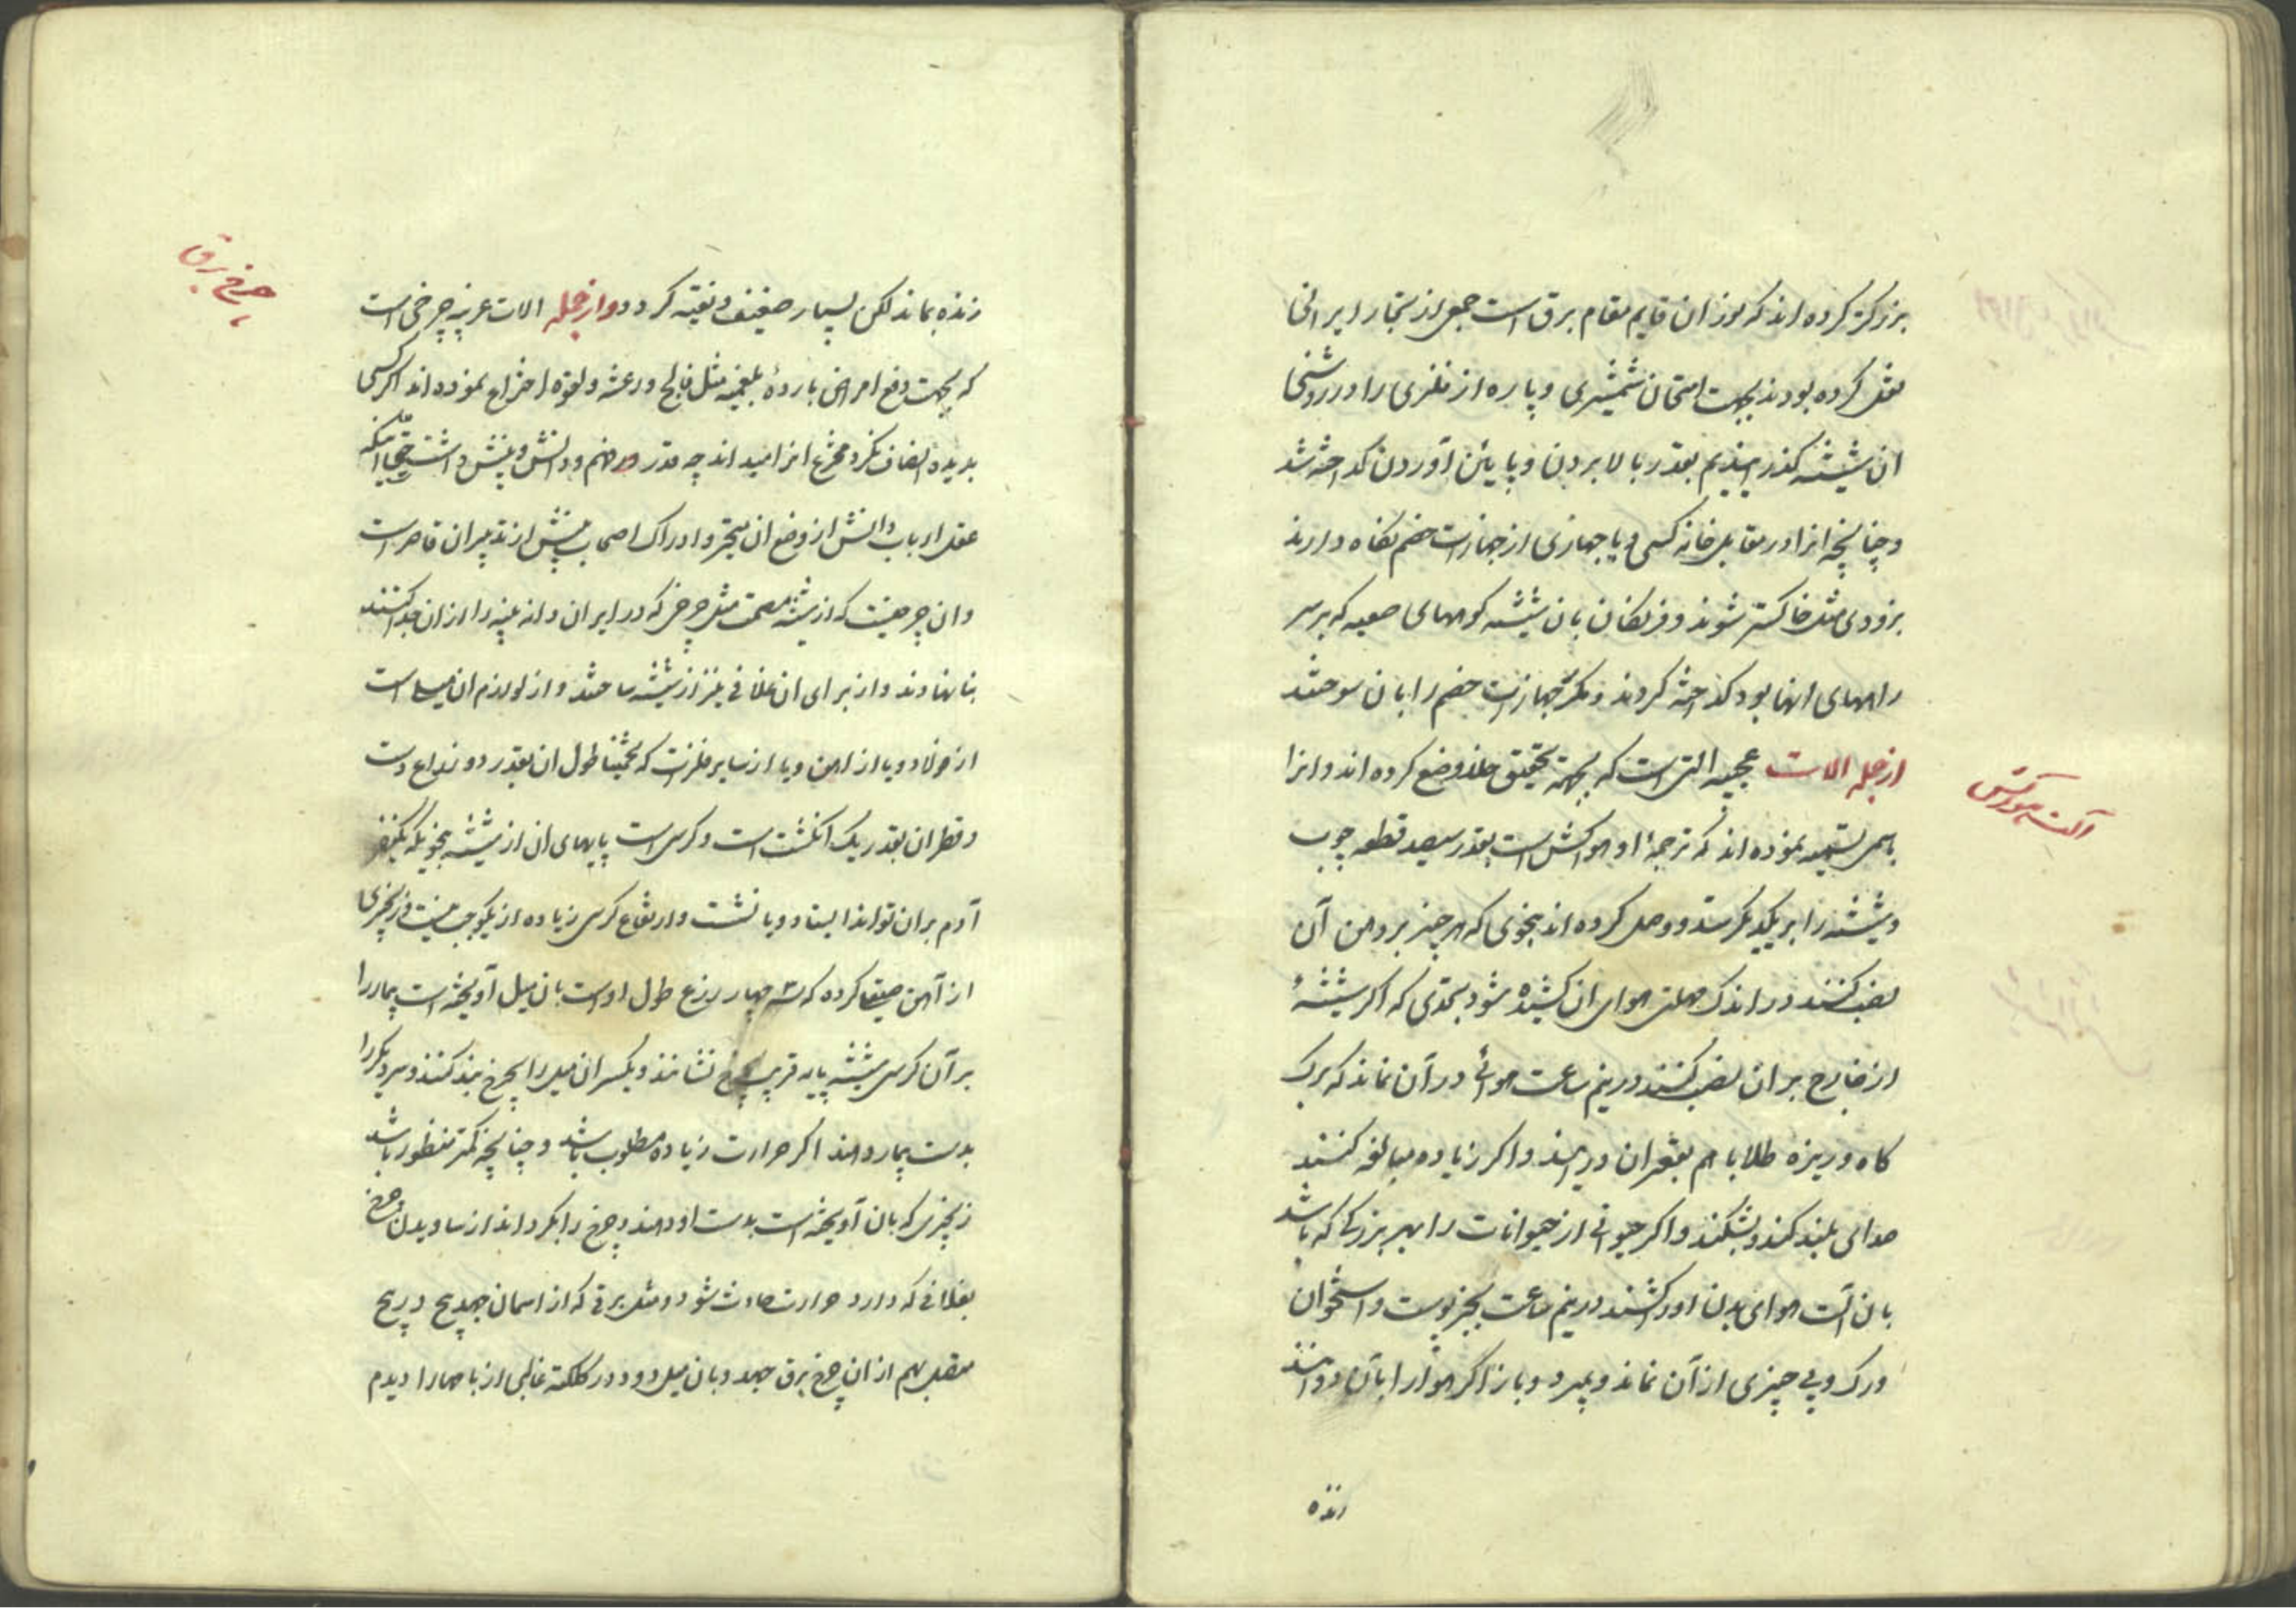 بزرگتر کرده اند که سوزان قایم مقام برق است جمعی از تجار ایرانی
نقل کرده بودند بجهت امتحان شمشیری و پاره از فلزی را در روشنی
ان شیشه گذرانیدیم بقدر بالا بردن و پائین آوردن گداخته شد
و چنانچه انرا در مقابل خانه کسی و یا جهازی از جهازات خصم نگاه دارند
بزودی مثل خاکستر شوند و فرنگان بان شیشه کوههای صعبه که بر سر
راههای انها بود گداخته کردند و مکرر جهازات خصم را بان سوختند
از جمله الات عجیبه التی است که بجهة تحقیق خلاء وضع کرده اند و انرا
باسمی تسمیه نموده اند که ترجمهٔ او هواکش است بقدر سیصد قطعه چوب
و شیشه را بر یکدیگر سته و وصل کرده اند بنحوی که هر چیز بر دهن آن
نصب کنند در اندک مهلتی هوای ان کشیده شود بحدی که اگر شیشهٔ
از خارج بر ان نصب کنند در نیم ساعت هوائی در آن نماند که برک
کاه و ریزه طلا با هم بقعر ان در ایند و اگر زیاده مبالغه کنند
صدای بلند کند و بشکند و اگر حیوانی از حیوانات را بهر بزرگی که باشد
بان آلت هوای بدن او را کشند در نیم ساعت بجز پوست و استخوان
و رک و پی چیزی از آن نماند و بمیرد و باز اگر هوا را بآن در دهند
زنده
آلت هواکش
زنده بماند لکن بسیار ضعیف و نقیه گردد و از جمله الات غریبه چرخی است
که بجهت دفع امراض باردهٔ بلغمیه مثل فالج و رعشه و لقوه اختراع نموده اند اگر کسی
بدیده انصاف نگرد مخترع انرا میداند چه قدر در فهم و دانش و بینش داشته حقا اینکه
عقل ارباب دانش از وضع ان متحیر و ادراک اصحاب بینش از تدبیر ان قاصر است
و ان چرخیست که از شیشه مصمت مثل چرخی که در ایران دانه پنبه را از ان جدا کنند
بنا نهادند و از برای ان غلافی نیز از شیشه ساختند و از لوازم ان میلی است
از فولاد و یا از اهن و یا از سایر فلزات که تخمینا طول ان بقدر دو ذراع دست
و قطر ان بقدر یک انگشت است و کرسی است پایهای ان از شیشه بنحویکه یکنفر
آدم بر ان تواند ایستاد و یا نشست و ارتفاع کرسی زیاده از یکوجب نیست و زنجیری
از آهن صیقل کرده که سه چهار ذرع طول او است بان میل آویخته است بیمار را
بر آن کرسی شیشه پایه قریب بچرخ نشانند و یکسر ان میل را بچرخ بند کنند و سر دیگر را
بدست بیمار دهند اگر حرارت زیاده مطلوب باشد و چنانچه کمتر منظور باشد
زنجیری که بان آویخته است بدست او دهند و چرخ را بگردانند از سائیدن چرخ
بغلافی که دارد حرارت حادث شود و مثل برقی که از اسمان جهد پیچ در پیچ
متصل بهم از ان چرخ برق جهد و بان میل دود در کلکته غالبی از بیمارها را دیدم
چرخ برق